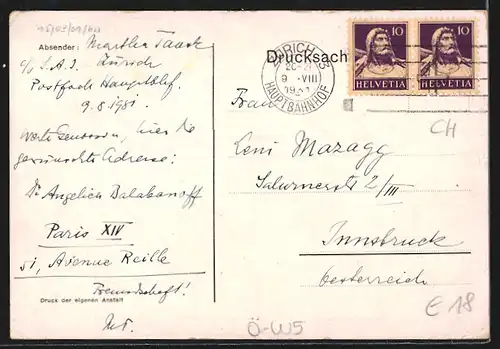 Absender: Martha Tausk
c/o S.A.I. Zürich
Postfach Hauptbhf.
9.8.1931
Werte Genossin, hier die
gewünschte Adresse:
Dr Angelica Balabanoff
Paris XIV
51, Avenue Reille
Freundschaft!
Druck der eigenen Anstalt
MT.
Drucksach
ZÜRICH
9 VIII
HAUPTBAHNHOF
10 10
HELVETIA HELVETIA
CH
Frau
Leni Mazagg
Salurnerstr 2/III
Innsbruck
Oesterreich
€ 18
Ö-W5